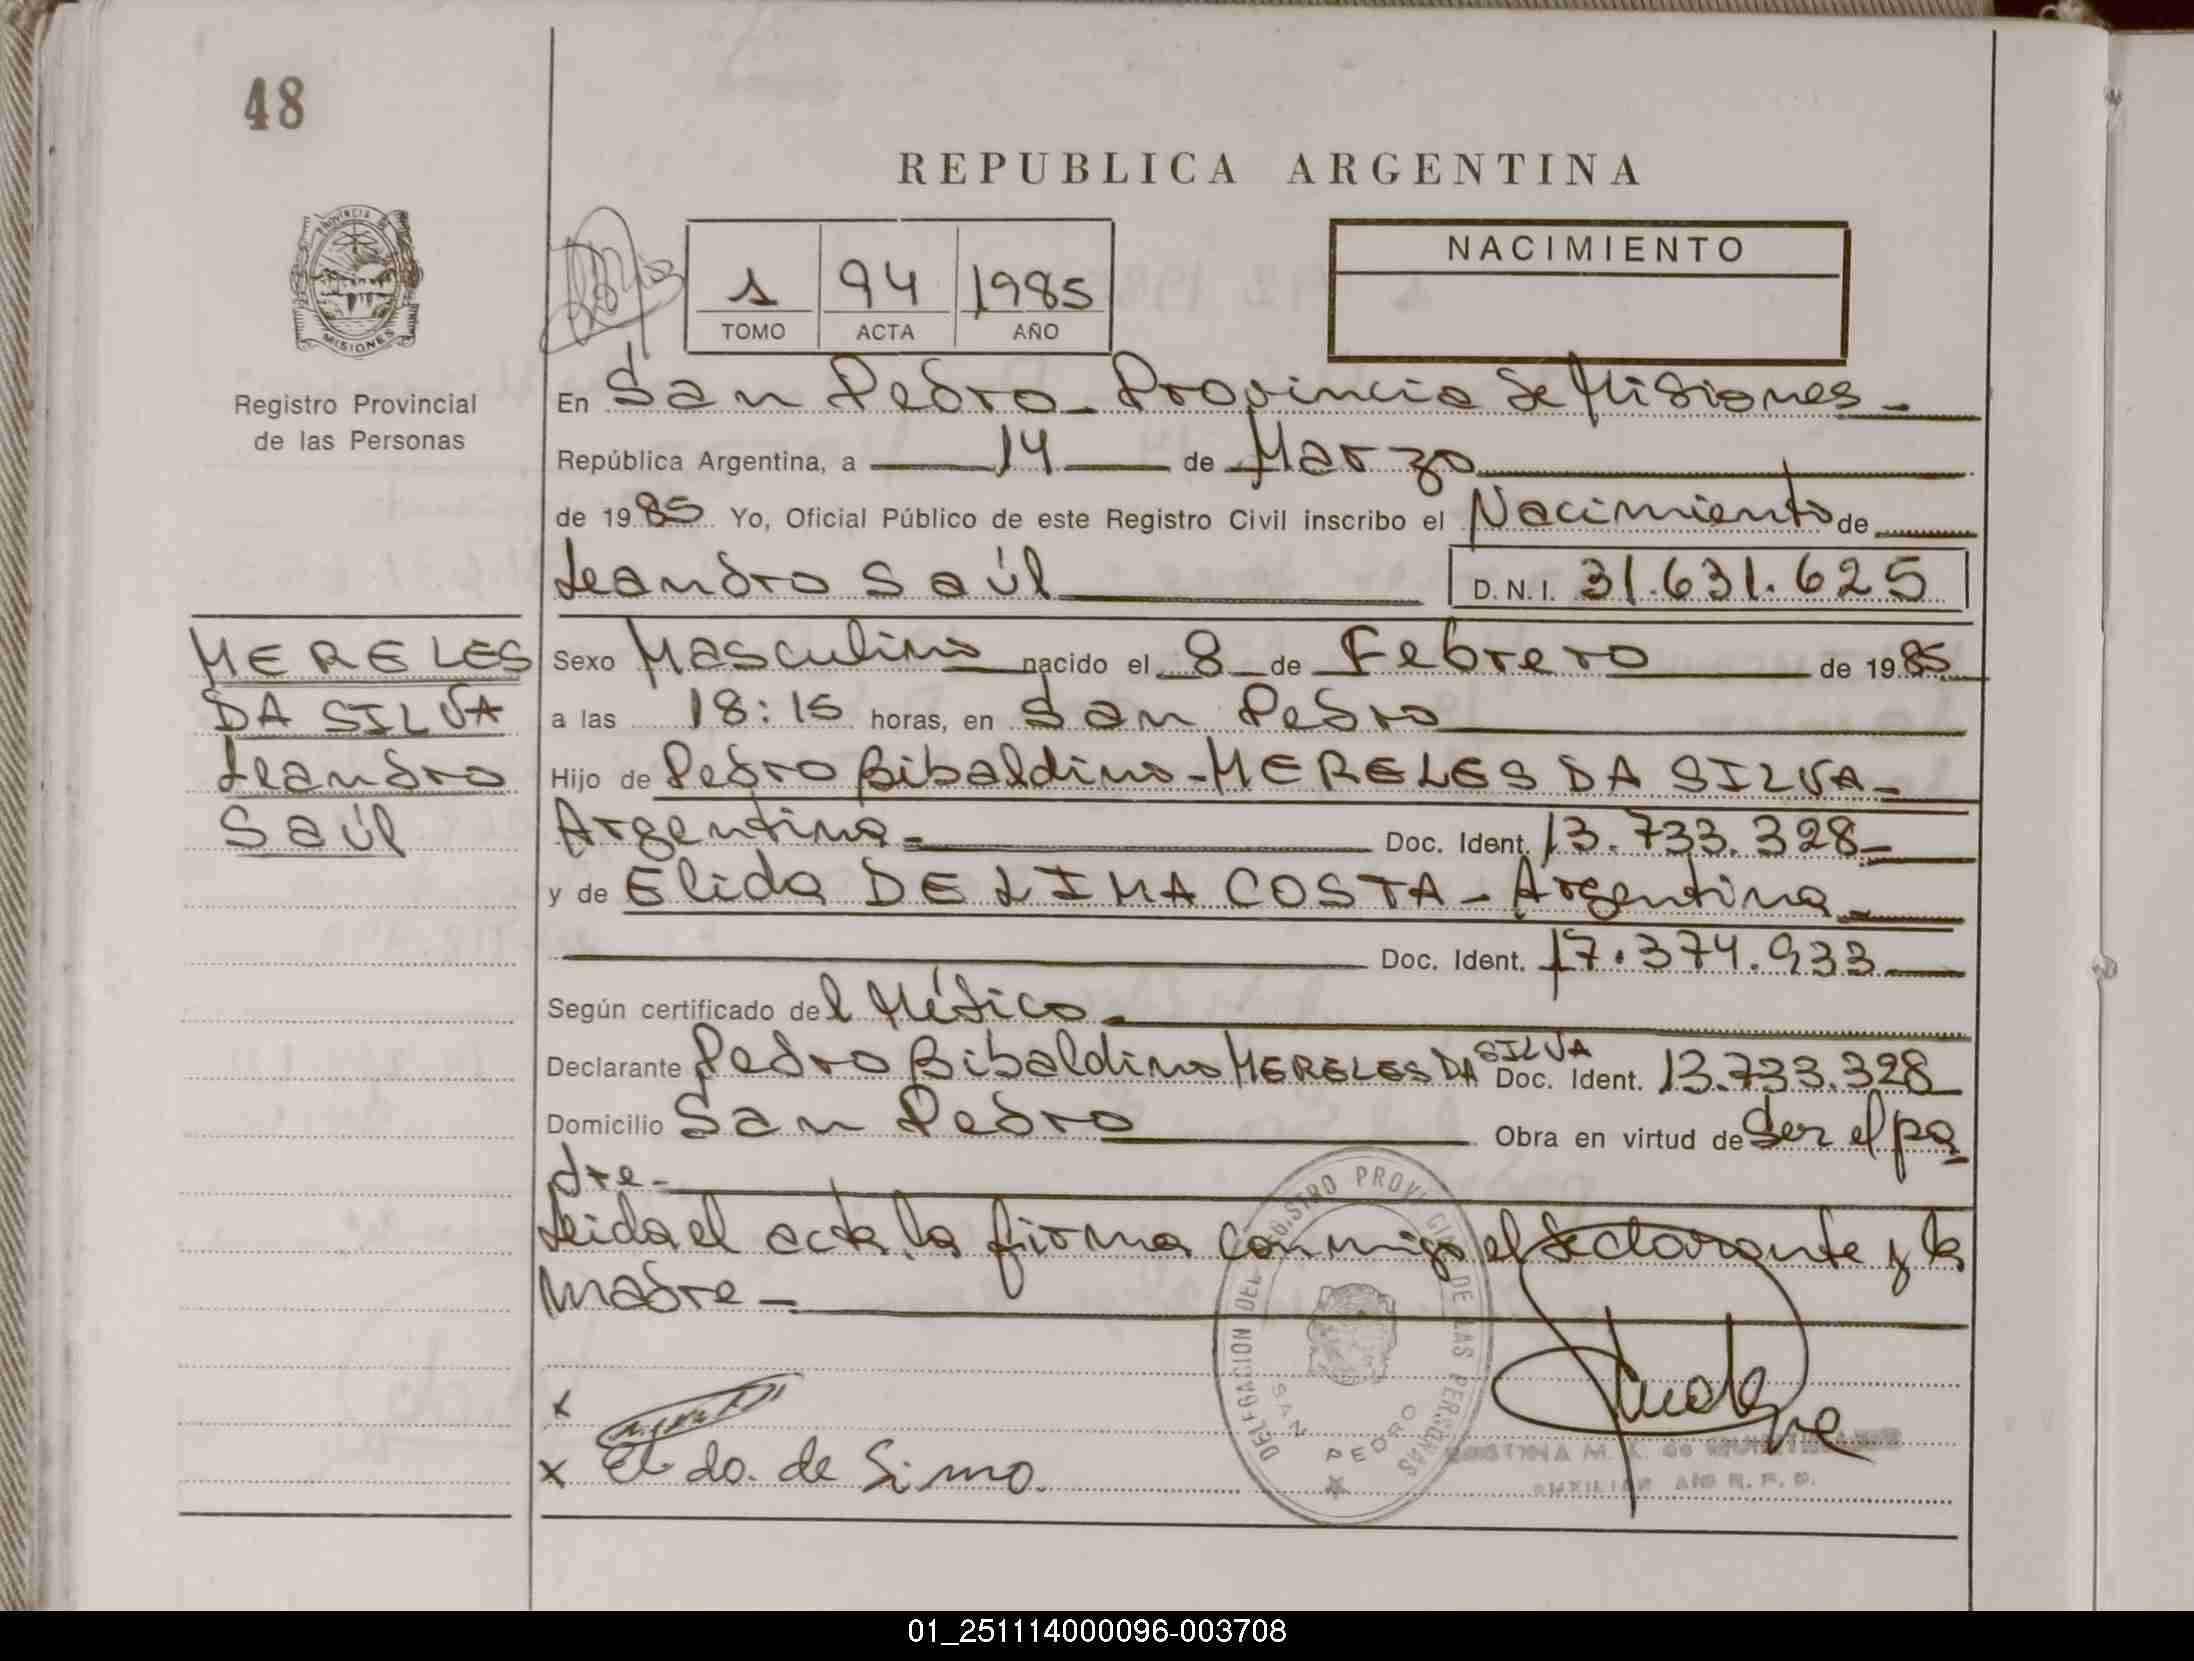 48
REPUBLICA ARGENTINA
PROVINCIA DE
MISIONES
1 94 1985
TOMO ACTA AÑO
NACIMIENTO
Registro Provincial
de las Personas
En San Pedro - Provincia de Misiones -
República Argentina, a 14 de Marzo
de 1985 Yo, Oficial Público de este Registro Civil inscribo el Nacimiento de
Leandro Saúl D.N.I. 31.631.625
MERELES
DA SILVA
Leandro
Saúl
Sexo Masculino nacido el 8 de Febrero de 1985
a las 18:15 horas, en San Pedro
Hijo de Pedro Bibaldino - MERELES DA SILVA -
Argentina - Doc. Ident. 13.733.328 -
y de Elida DE LIMA COSTA - Argentina -
Doc. Ident. 17.374.933
Según certificado del Médico -
Declarante Pedro Bibaldino MERELES DA SILVA Doc. Ident. 13.733.328
Domicilio San Pedro Obra en virtud de Ser el pa
dre -
Leida el acta, la firma conmigo el declarante y la
madre -
DELEGACION DEL REGISTRO PROVINCIAL DE LAS PERSONAS
SAN PEDRO
x
x El do. de Simo.
M. K. de
AUXILIAR R. P. P.
01_251114000096-003708